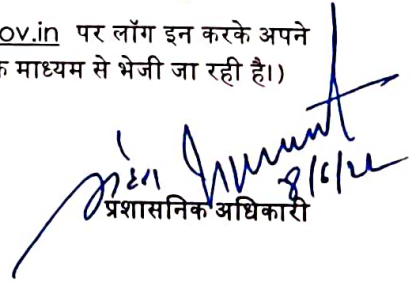 ov.in पर लॉग इन करके अपने
क माध्यम से भेजी जा रही है।)
8/6/22
प्रशासनिक अधिकारी